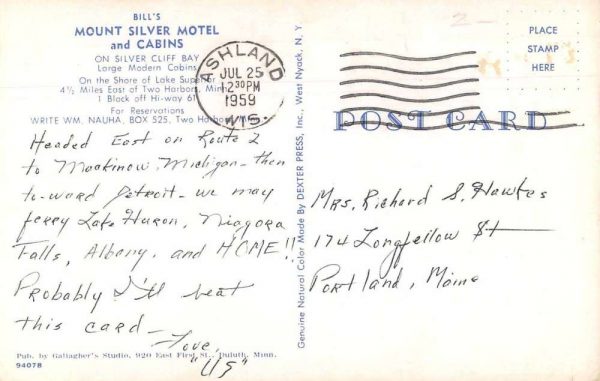 BILL'S
MOUNT SILVER MOTEL
and CABINS
ON SILVER CLIFF BAY
Large Modern Cabins
On the Shore of Lake Superior
4½ Miles East of Two Harbors, Minn.
1 Block off Hi-way 61
For Reservations
WRITE WM. NAUHA, BOX 525, Two Harbors, Minn.
ASHLAND
JUL 25
12 30 PM
1959
WIS.
2-
PLACE
STAMP
HERE
POST CARD
Headed East on Route 2
to Mackinow, Michigan - then
to-ward Detroit - we may
ferry Lake Huron, Niagora
Falls, Albany, and HOME!!
Probably I'll beat
this card -
Love,
"US"
Mrs. Richard S. Hawkes
174 Longfellow St
Portland, Maine
Genuine Natural Color Made By DEXTER PRESS, Inc., West Nyack, N. Y.
Pub. by Gallagher's Studio, 920 East First St., Duluth, Minn.
94078